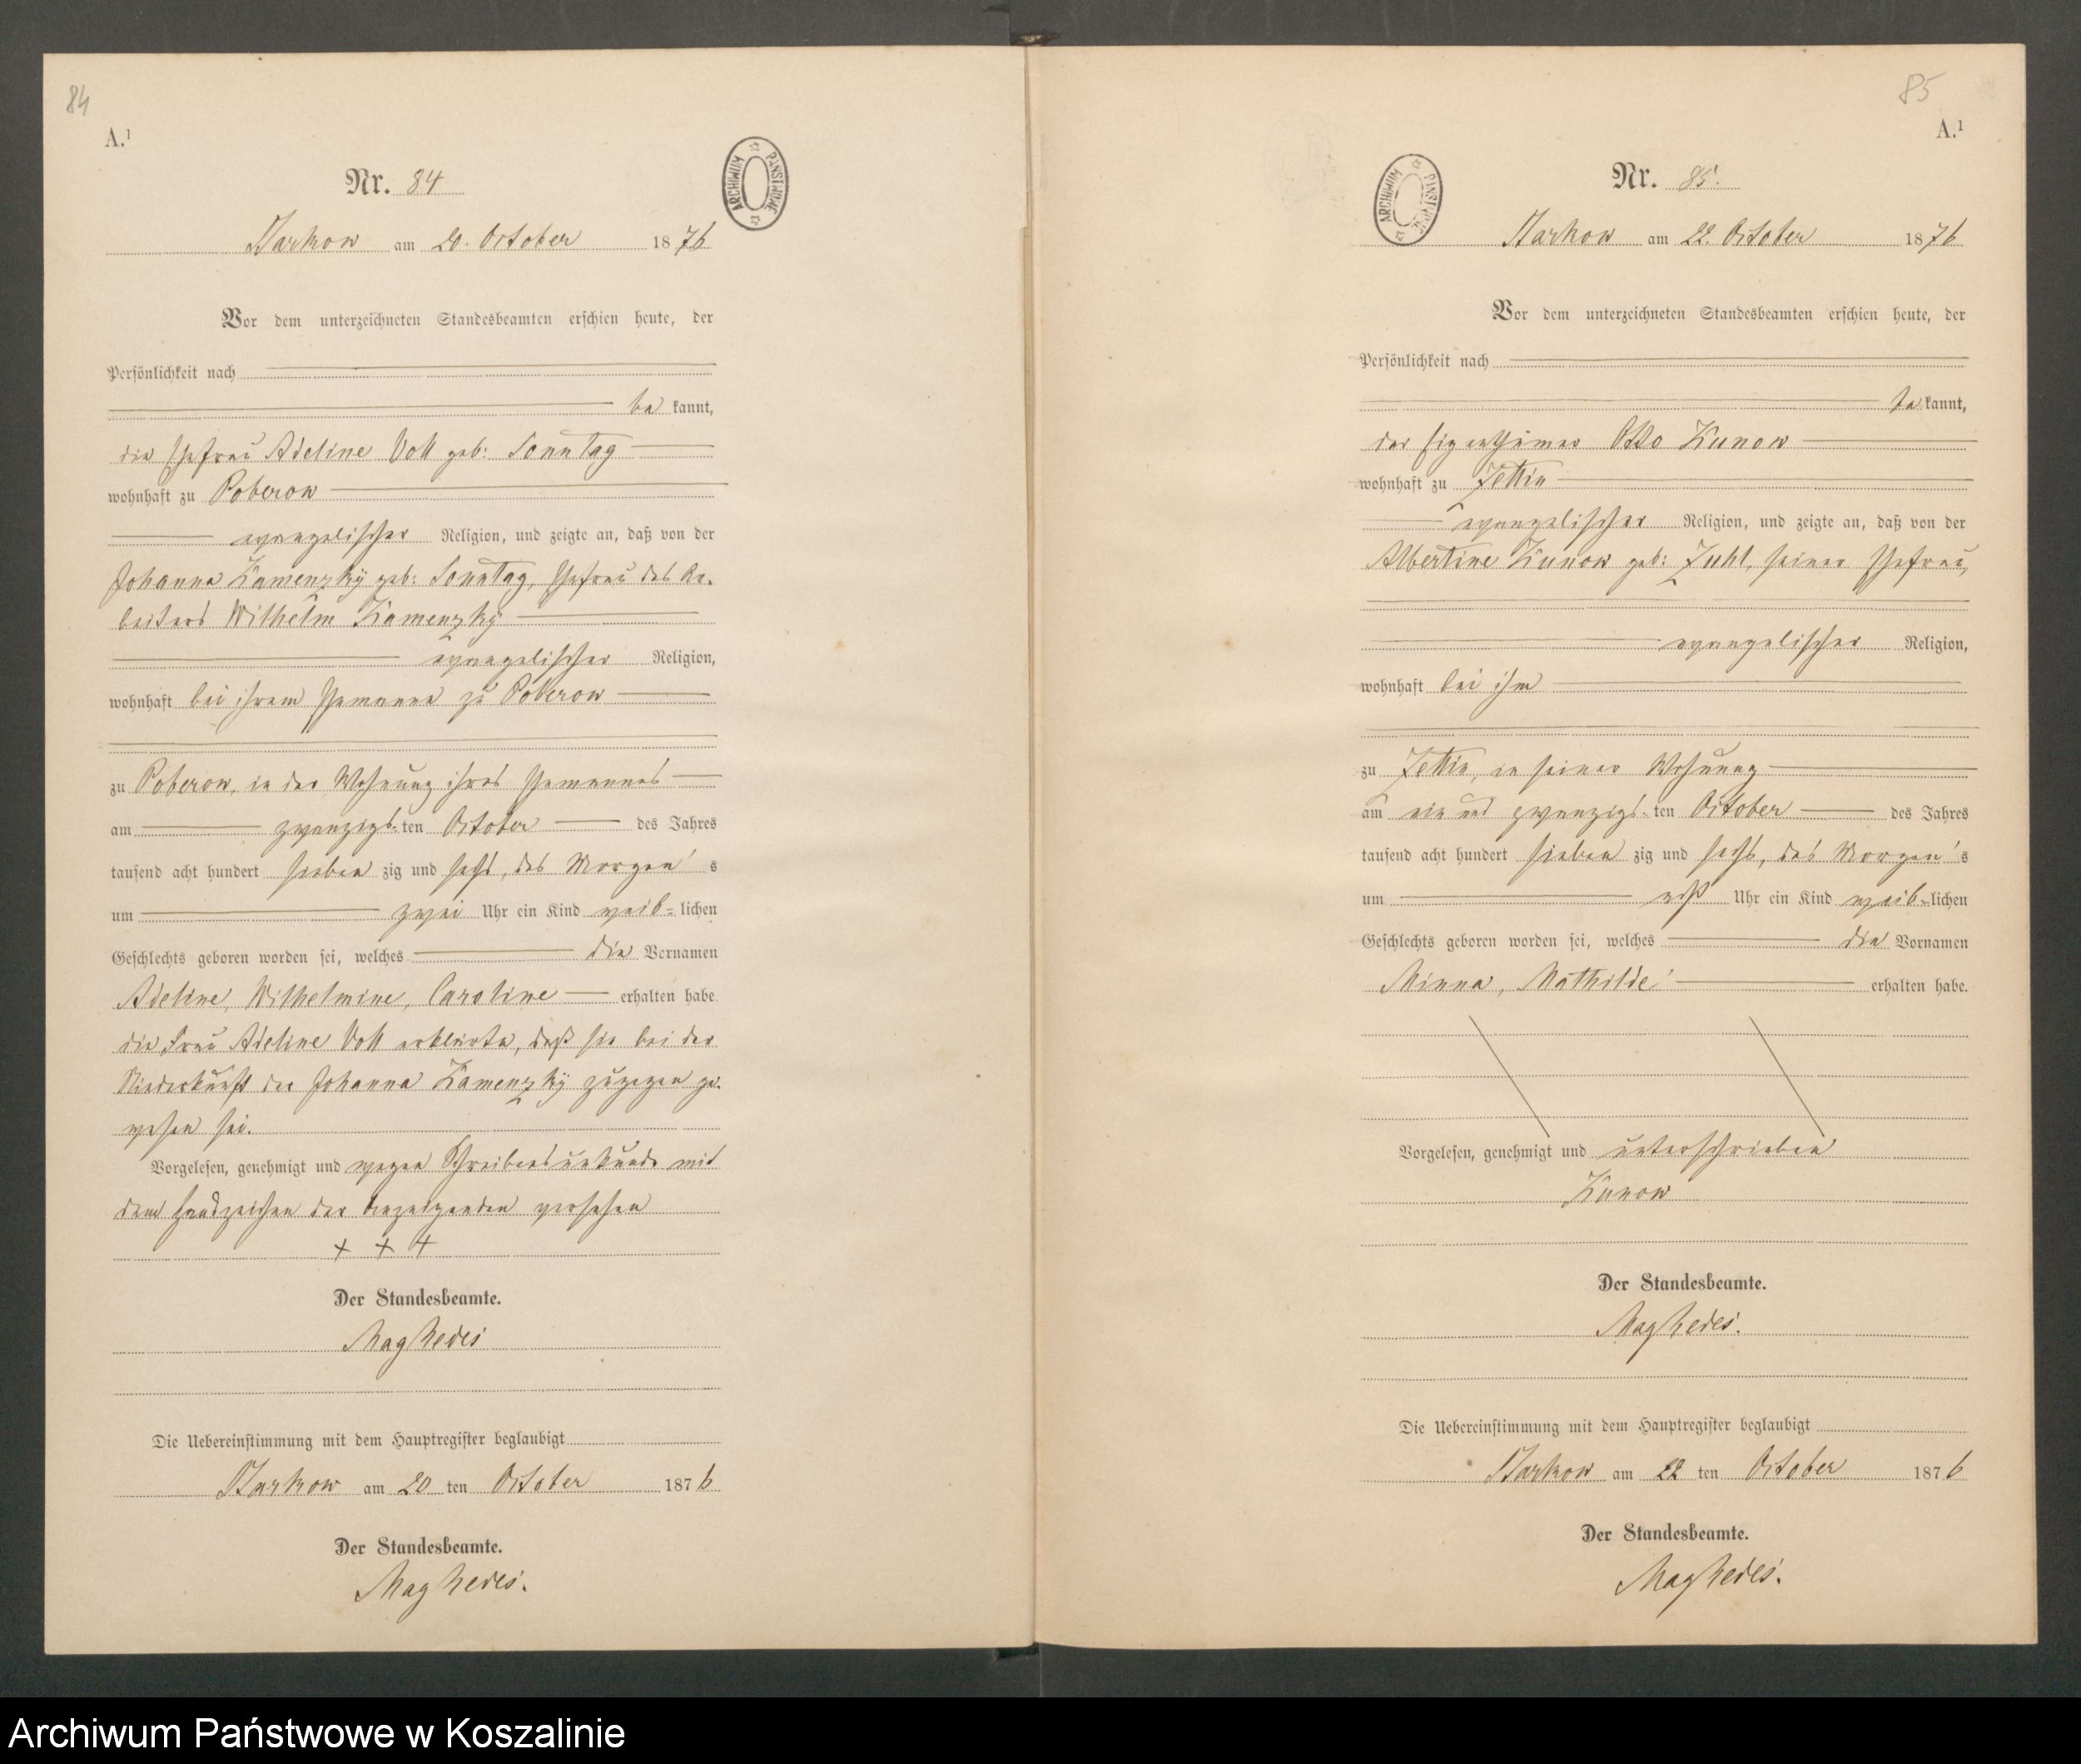 84
A.¹
Nr. 84
ARCHIWUM PAŃSTWOWE
Starkow am 20. October 1876
Vor dem unterzeichneten Standesbeamten erschien heute, der
Persönlichkeit nach
be kannt,
die Ehefrau Adeline Voll geb: Sonntag
wohnhaft zu Poberow
evangelischer Religion, und zeigte an, daß von der
Johanna Kamenzky geb: Sonntag, Ehefrau des Ar-
beiters Wilhelm Kamenzky
evangelischer Religion,
wohnhaft bei ihrem Ehemanne zu Poberow
zu Poberow, in der Wohnung ihres Ehemannes
am zwanzigs-ten October des Jahres
tausend acht hundert sieben zig und sechs, des Morgen's
um zwei Uhr ein Kind weib-lichen
Geschlechts geboren worden sei, welches die Vornamen
Adeline, Wilhelmine, Caroline erhalten habe
die Frau Adeline Voll erklärte, daß sie bei der
Niederkunft der Johanna Kamenzky zugegen ge-
wesen sei.
Vorgelesen, genehmigt und wegen Schreibensunkunde mit
dem Handzeichen der Anzeigenden versehen
+ + +
Der Standesbeamte.
Die Uebereinstimmung mit dem Hauptregister beglaubigt
Starkow am 20 ten October 1876
Der Standesbeamte.
85
A.¹
Nr. 85.
ARCHIWUM PAŃSTWOWE
Starkow am 22. October 1876
Vor dem unterzeichneten Standesbeamten erschien heute, der
Persönlichkeit nach
be kannt,
der Eigenthümer Otto Kunow
wohnhaft zu Zettin
evangelischer Religion, und zeigte an, daß von der
Albertine Kunow geb: Zuhl, seiner Ehefrau,
evangelischer Religion,
wohnhaft bei ihm
zu Zettin, in seiner Wohnung
am ein und zwanzigs-ten October des Jahres
tausend acht hundert sieben zig und sechs, des Morgen's
um acht Uhr ein Kind weib-lichen
Geschlechts geboren worden sei, welches die Vornamen
Minna, Mathilde erhalten habe.
Vorgelesen, genehmigt und unterschrieben
Kunow
Der Standesbeamte.
Die Uebereinstimmung mit dem Hauptregister beglaubigt
Starkow am 22 ten October 1876
Der Standesbeamte.
Archiwum Państwowe w Koszalinie